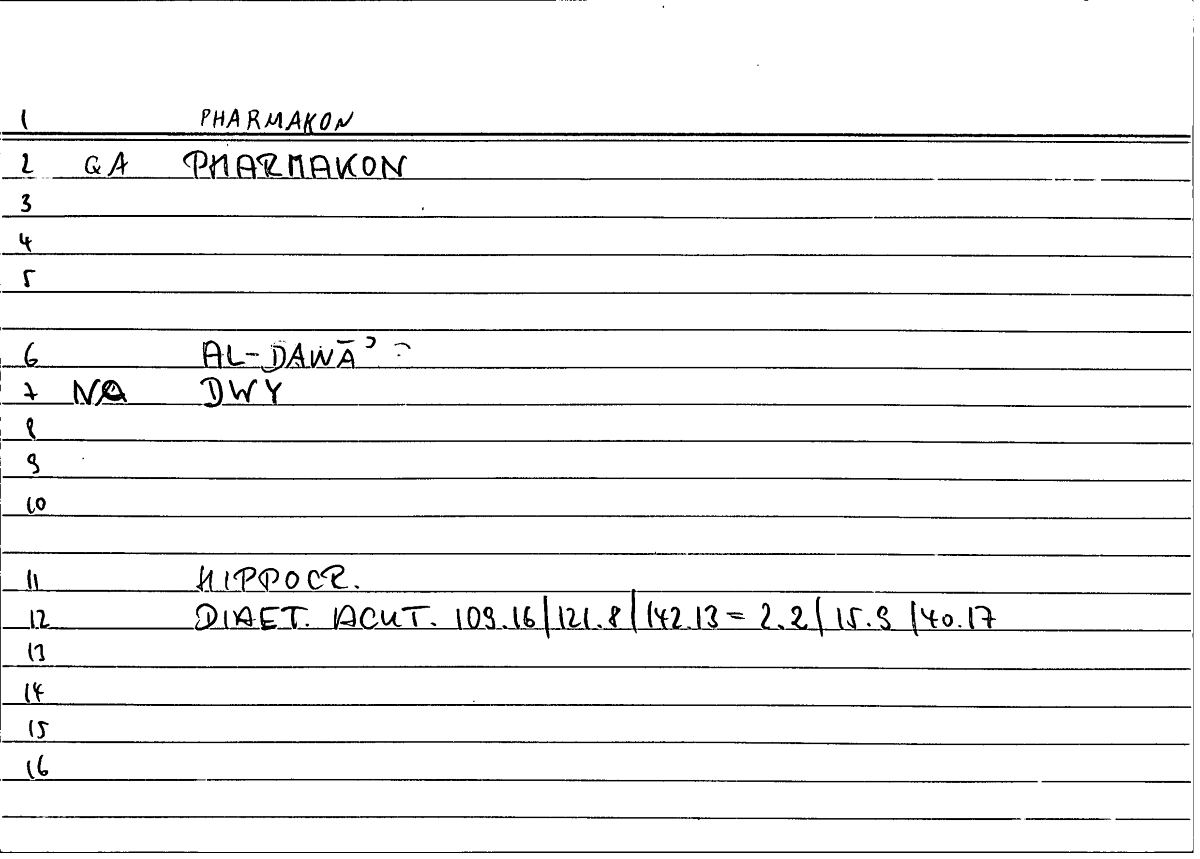 1 PHARMAKON
2 GA PHARMAKON
3
4
5
6 AL-DAWĀʾ
7 NQ DWY
8
9
10
11 HIPPOCR.
12 DIAET. ACUT. 109.16|121.8|142.13 = 2.2|15.9|40.17
13
14
15
16